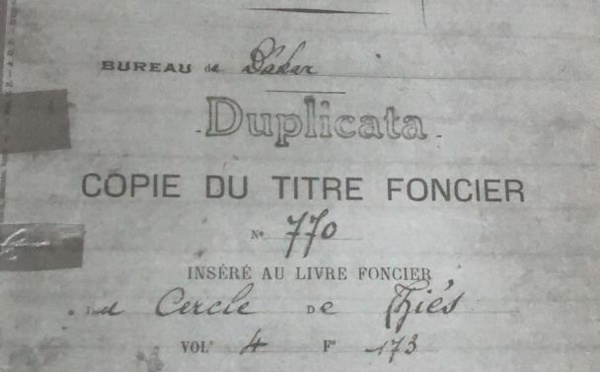 BUREAU de Dakar
Duplicata
COPIE DU TITRE FONCIER
N° 770
INSÉRÉ AU LIVRE FONCIER
du Cercle De Thiés
VOL. 4 F° 173